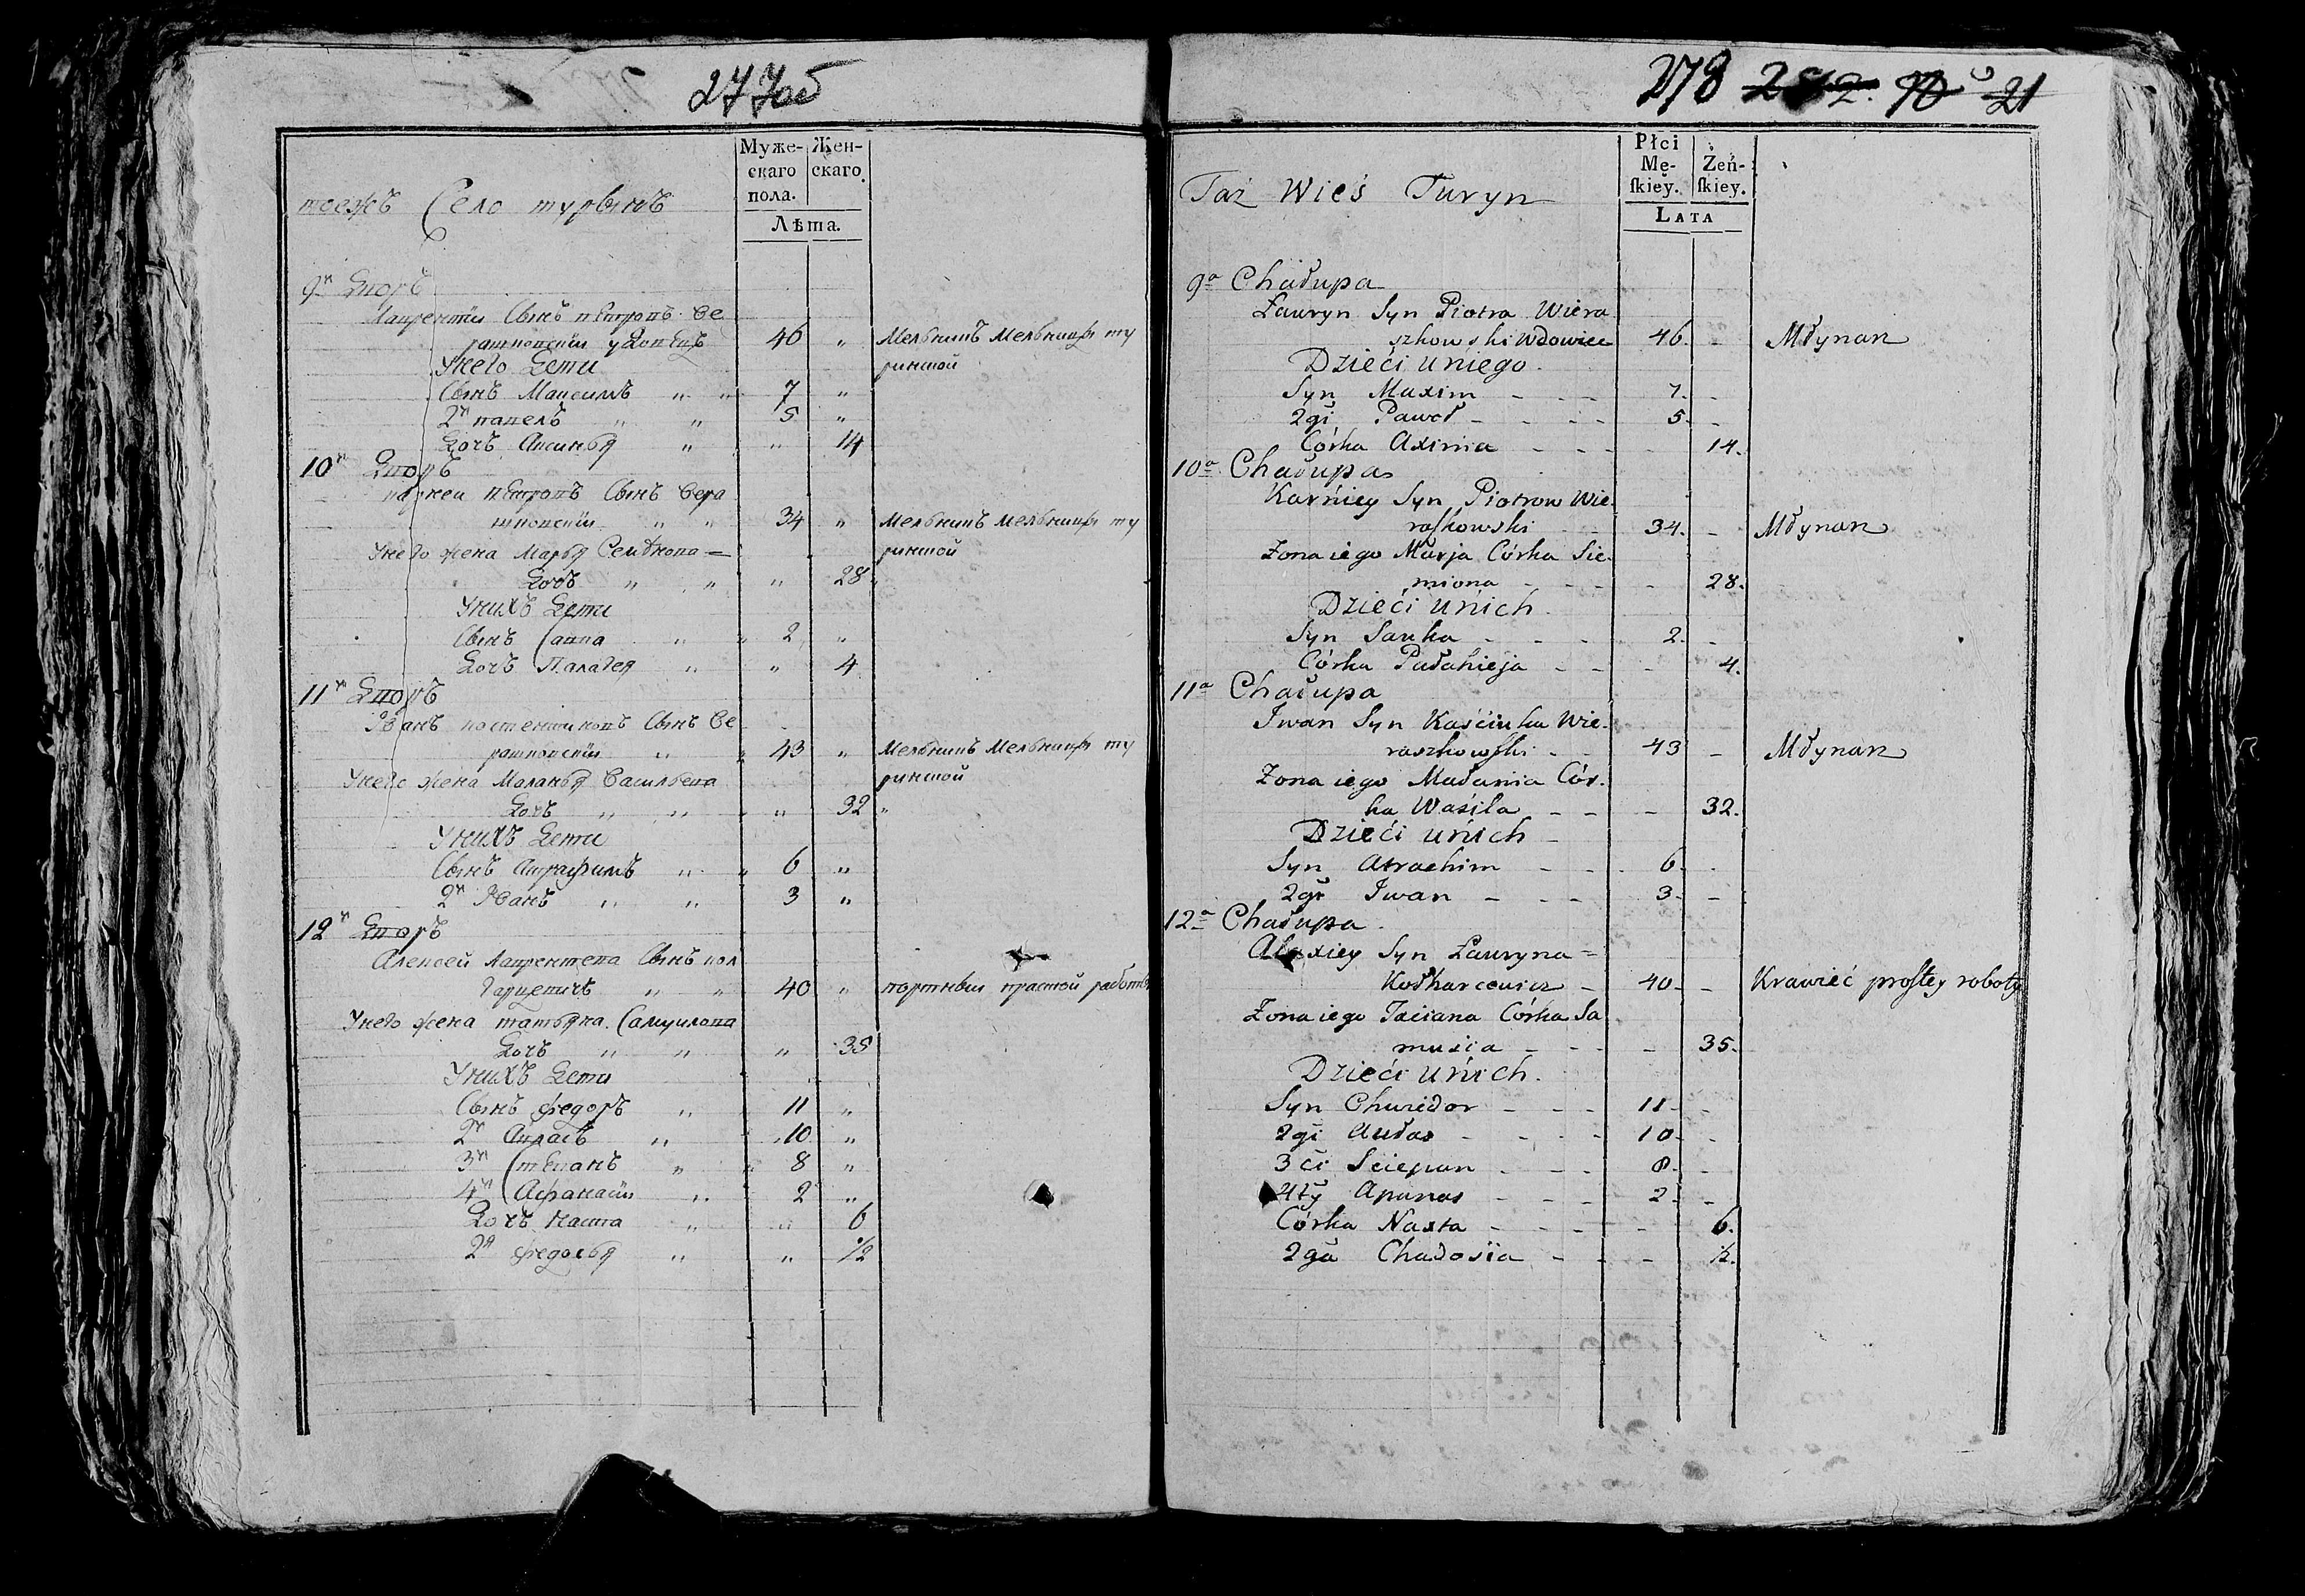 277об
Муже- Жен-
скаго скаго.
пола.
Лѣта.
тоежъ Село турынъ
9й Дворъ
Лаврентий Сынъ петровъ Ве
рашковский удовецъ 46 " Мельникъ Мельницы ту
ринской
У него Дети
Сынъ Максимъ " " 7 "
2й павелъ " " 5 "
Дочь Аксинья " " 14
10й Дворъ
корней петровъ Сынъ Вера
шковский " " 34 " Мельникъ Мельницы ту
ринской
У него жена Марья Семѣнова
Дочь " " " 28
У нихъ Дети
Сынъ Савка " " 2 "
Дочь Палагея " " 4
11й Дворъ
Иванъ костентиновъ Сынъ Ве
рашковский " 43 " Мельникъ Мельницы ту
ринской
У него жена Маланья Васильева
Дочь " " " 32
У нихъ Дети
Сынъ " 6 "
2й Иванъ " " 3 "
12й Дворъ
Алексей Лаврентева Сынъ кол
" " 40 " портный прастой работы
У него жена татьяна Самуилова
Дочь " " " 35
У нихъ Дети
Сынъ федоръ " 11 "
2й Авласъ " 10 "
3й Степанъ " 8 "
4й Афанасий " 2 "
Дочь Наста " " 6
2я федосья " " 1/2
278 21
Płci
Mę- Żeń-
skiey. skiey.
LATA
Taż Wieś Turyn
9a Chałupa
Ławryn Syn Piotra Wiera
szkowski Wdowiec 46. - Młynarz
Dzieći u niego.
Syn Maxim - - - 7. -
2gi Paweł - - - - 5. -
Córka Axinia - - - - 14.
10a Chałupa
Karniey Syn Piotrow Wie
raszkowski 34. - Młynarz
Żona iego Marja Córka Sie
miona - - - - 28.
Dzieći u nich.
Syn Sauka - - - 2. -
Córka Pałahieja - - - 4.
11a Chałupa
Iwan Syn Kaściuka Wie
raszkowski - - 43 - Młynarz
Żona iego Małania Cór
ka Wasila - - - 32.
Dzieći u nich -
Syn Atrachim - - 6. -
2gi Iwan - - - 3. -
12a Chałupa.
Alexiey Syn Ławryna
- 40 - Krawieć prostey roboty
Żona iego Taciana Córka Sa
musia - - - - 35.
Dzieći u nich.
Syn Chwiedor - - - 11 - -
2gi Aułas - - - - 10 - -
3ci Sciepan - - - 8. -
4ty Apanas - - - 2. -
Córka Nasta - - - - 6.
2ga Chadosia - - - 1/2.